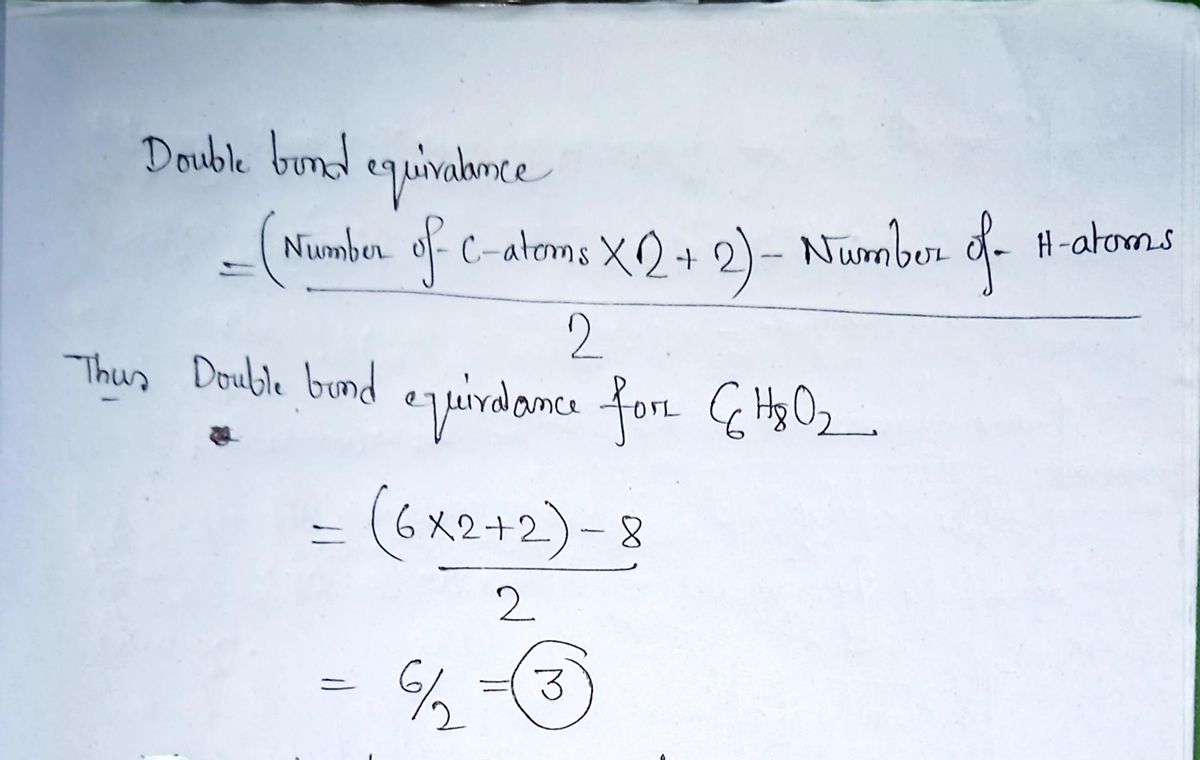 Double bond equivalance
= (Number of C-atoms X 2 + 2) - Number of H-atoms
2
Thus Double bond equivalance for C6H8O2
= (6X2+2) - 8
2
= 6/2 = 3